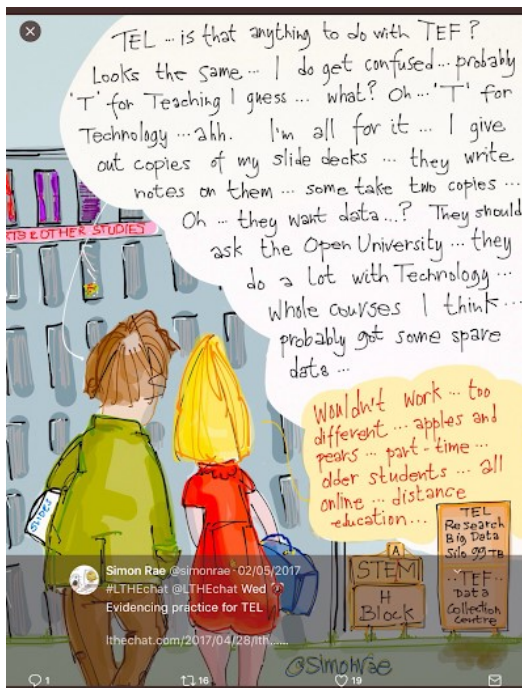 TEL ... is that anything to do with TEF?
Looks the same... I do get confused... probably
'T' for Teaching I guess ... what? Oh ... 'T' for
Technology ... ahh. I'm all for it ... I give
out copies of my slide decks ... they write
notes on them ... some take two copies ...
Oh ... they want data ...? They should
ask the Open University ... they
do a lot with Technology ...
Whole courses I think ...
probably got some spare
data ...
& OTHER STUDIES
Wouldn't work ... too
different ... apples and
pears ... part-time ...
older students ... all
online ... distance
education ...
SLIDES
TEL
Research
Big Data
Silo 99 TB
..TEF..
Data
Collection
Centre
A
STEM
H
Block
Simon Rae @simonrae · 02/05/2017
#LTHEchat @LTHEchat Wed
Evidencing practice for TEL
lthechat.com/2017/04/28/lth......
@SimonRae
1
16
19